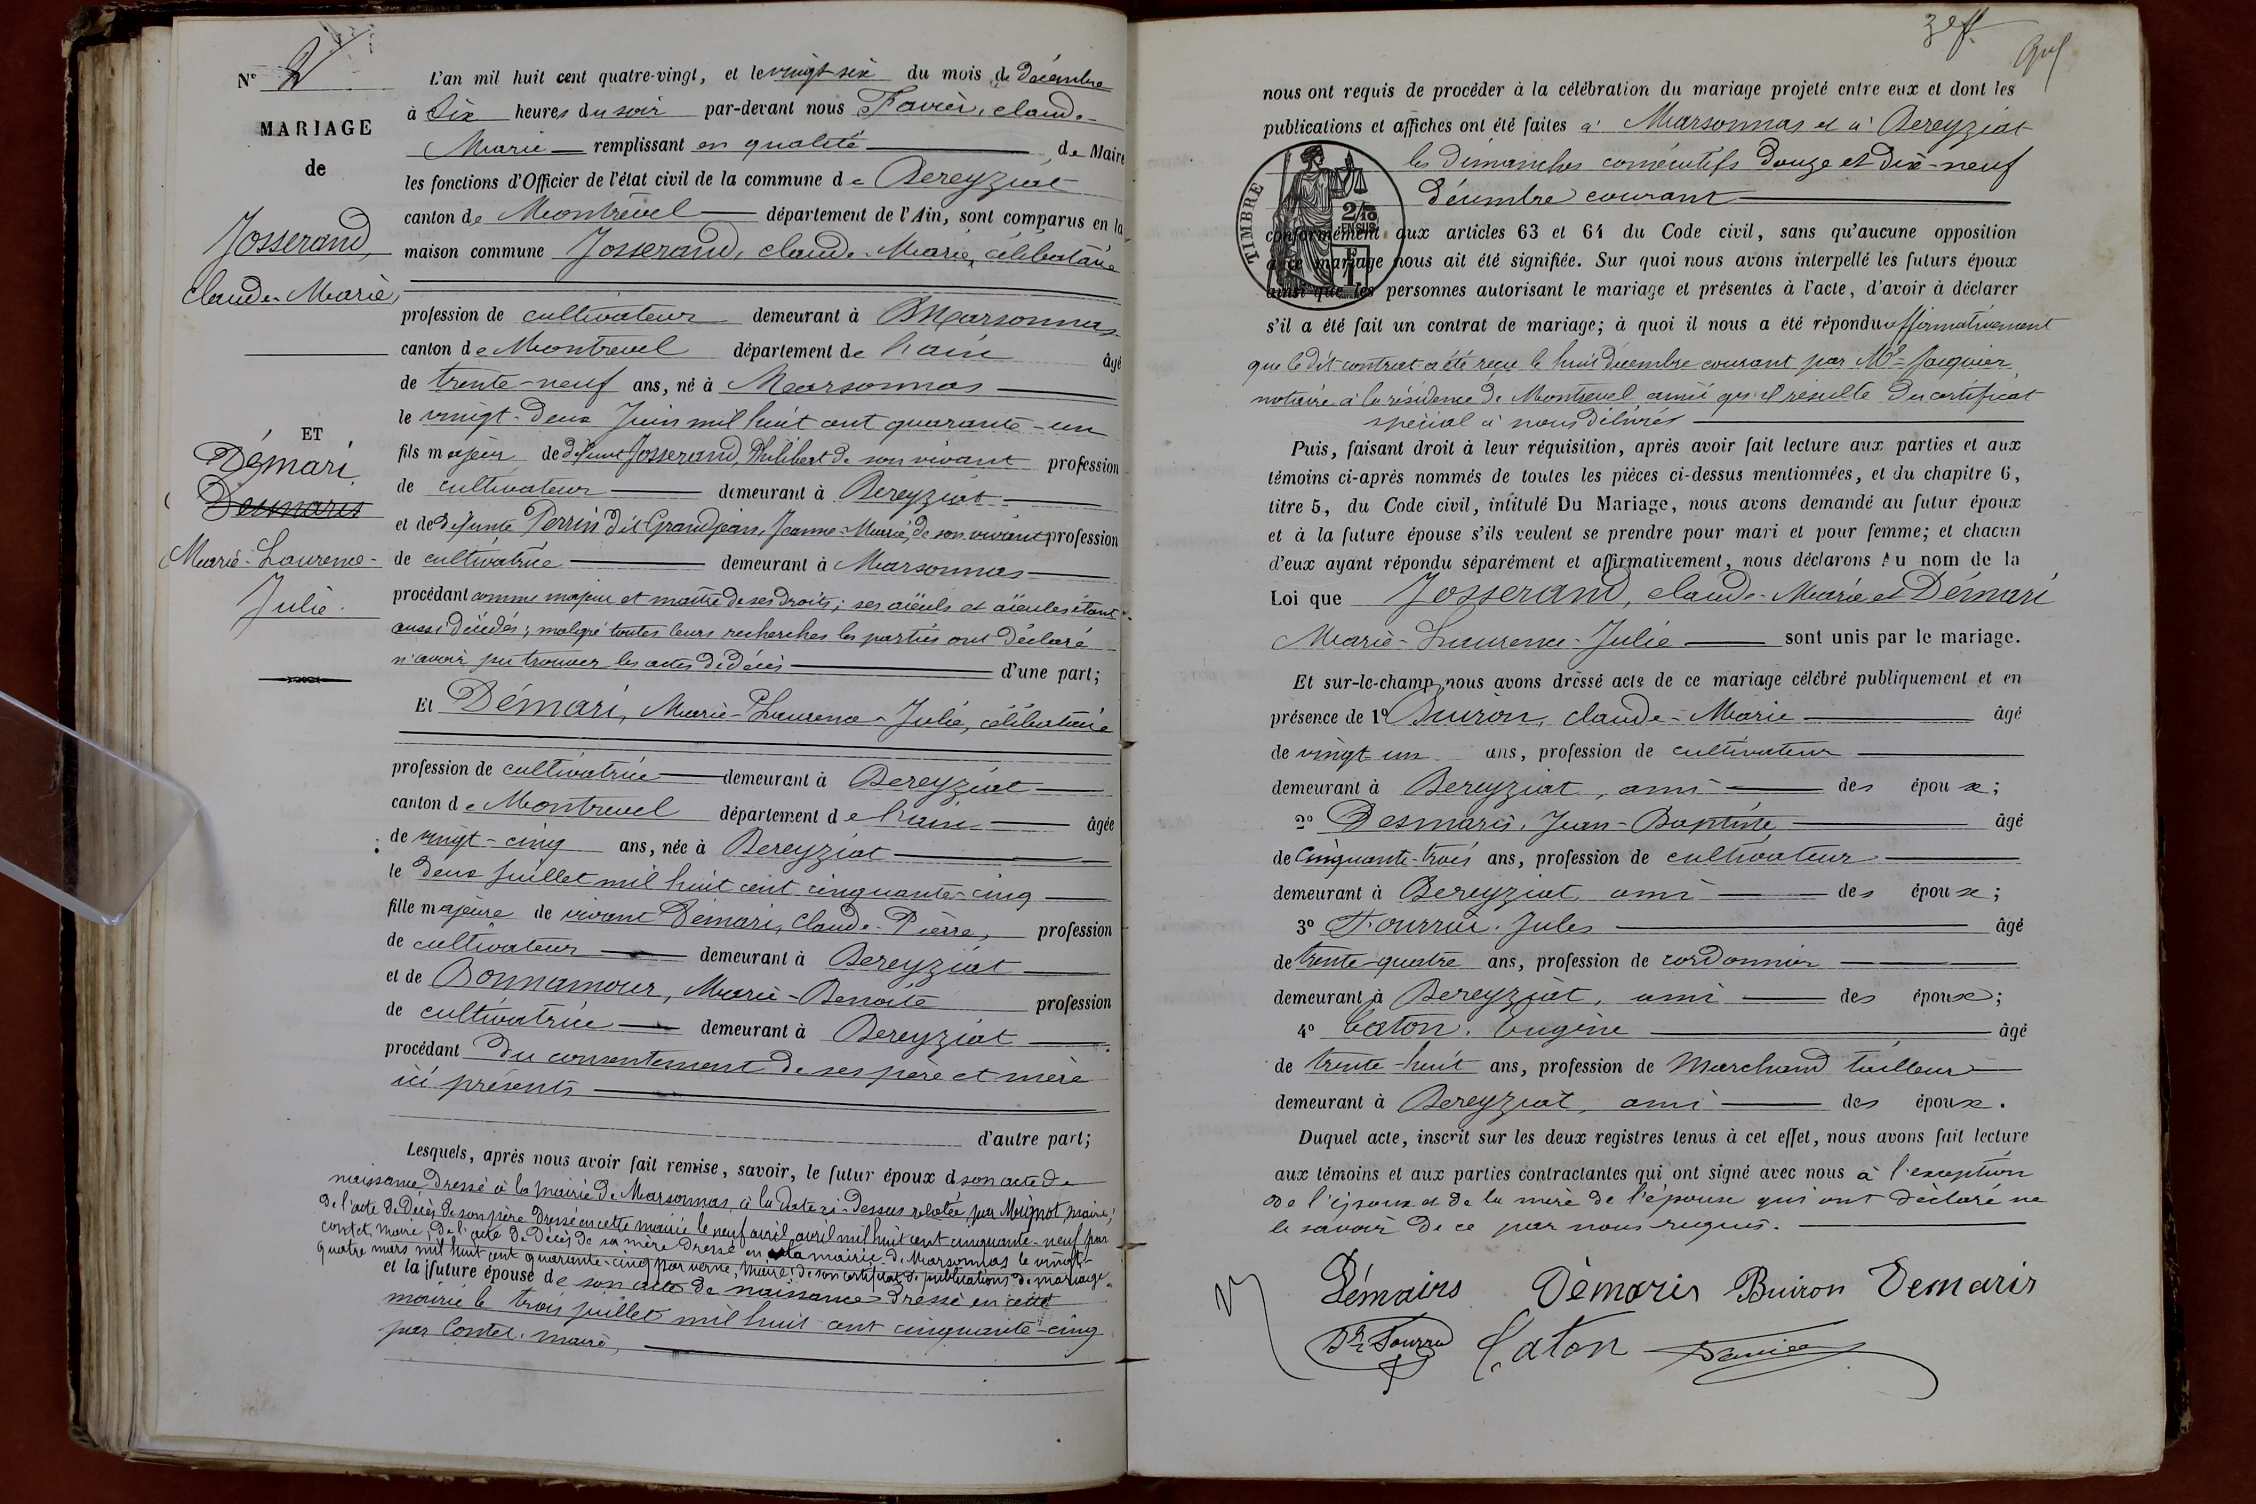 N° 2
MARIAGE
de
Josserand,
Claude-Marie,
ET
Démari
Desmaris
Marie-Laurence-
Julie.
L'an mil huit cent quatre-vingt, et le vingt six du mois de Décembre
à Six heures du soir par-devant nous Favier, Claude-
Marie remplissant en qualité de Maire
les fonctions d'Officier de l'état civil de la commune de Bereyziat
canton de Montrevel département de l'Ain, sont comparus en la
maison commune Josserand, Claude-Marie, célibataire
profession de cultivateur demeurant à Marsonnas
canton de Montrevel département de l'ain âgé
de trente-neuf ans, né à Marsonnas
le vingt-deux Juin mil huit cent quarante-un
fils majeur de défunt Josserand, Philibert de son vivant profession
de cultivateur demeurant à Bereyziat
et de défunte Perrin dit Grandjean, Jeanne-Marie, de son vivant profession
de cultivatrice demeurant à Marsonnas
procédant comme majeur et maître de ses droits; ses aïeuls et aïeules étant
aussi décédés; malgré toutes leurs recherches les parties ont déclaré
n'avoir pu trouver les actes de décès d'une part;
Et Démari, Marie-Laurence-Julie, célibataire
profession de cultivatrice demeurant à Bereyziat
canton de Montrevel département de l'ain âgée
de vingt-cinq ans, née à Bereyziat
le deux juillet mil huit cent cinquante-cinq
fille majeure de vivant Démari, Claude-Pierre, profession
de cultivateur demeurant à Bereyziat
et de Bonnamour, Marie-Benoite profession
de cultivatrice demeurant à Bereyziat
procédant du consentement de ses père et mère
ici présents
d'autre part;
Lesquels, après nous avoir fait remise, savoir, le futur époux d son acte de
naissance dressé à la mairie de Marsonnas, à la date ci-dessus relatée, par Mignot, maire;
de l'acte de décès de son père dressé en cette mairie le neuf avril avril mil huit cent cinquante-neuf par
contet, maire; de l'acte de décès de sa mère dressé en la mairie de Marsonnas le vingt-
quatre mars mil huit cent quarante-cinq par verne, maire; de son certificat de publications de mariage
et la future épouse de son acte de naissance dressé en cette
mairie le trois juillet mil huit cent cinquante-cinq
par Contet, maire,
nous ont requis de procéder à la célébration du mariage projeté entre eux et dont les
publications et affiches ont été faites à Marsonnas et à Bereyziat
les dimanches consécutifs douze et dix-neuf
décembre courant
TIMBRE
2/10
EN SUS
conformément aux articles 63 et 64 du Code civil, sans qu'aucune opposition
à ce mariage nous ait été signifiée. Sur quoi nous avons interpellé les futurs époux
ainsi que les personnes autorisant le mariage et présentes à l'acte, d'avoir à déclarer
s'il a été fait un contrat de mariage; à quoi il nous a été répondu affirmativement
que le dit contrat a été reçu le huit décembre courant par Me Jacquier
notaire à la résidence de Montrevel ainsi qu'il résulte du certificat
spécial à nous délivrés
Puis, faisant droit à leur réquisition, après avoir fait lecture aux parties et aux
témoins ci-après nommés de toutes les pièces ci-dessus mentionnées, et du chapitre 6,
titre 5, du Code civil, intitulé Du Mariage, nous avons demandé au futur époux
et à la future épouse s'ils veulent se prendre pour mari et pour femme; et chacun
d'eux ayant répondu séparément et affirmativement, nous déclarons Au nom de la
Loi que Josserand, Claude-Marie et Démari
Marie-Laurence-Julie sont unis par le mariage.
Et sur-le-champ nous avons dressé acte de ce mariage célébré publiquement et en
présence de 1° Buiron, Claude-Marie âgé
de vingt un ans, profession de cultivateur
demeurant à Bereyziat, ami des époux;
2° Desmaris, Jean-Baptiste âgé
de Cinquante-trois ans, profession de cultivateur
demeurant à Bereyziat ami des époux;
3° Fourrur, Jules âgé
de trente-quatre ans, profession de cordonnier
demeurant à Bereyziat, ami des époux;
4° Caton, Eugène âgé
de trente-huit ans, profession de Marchand tailleur
demeurant à Bereyziat, ami des époux.
Duquel acte, inscrit sur les deux registres tenus à cet effet, nous avons fait lecture
aux témoins et aux parties contractantes qui ont signé avec nous à l'exception
de l'époux et de la mère de l'épouse qui ont déclaré ne
le savoir de ce par nous requis.
Démairs Démaris Buiron Demaris
Caton Favier